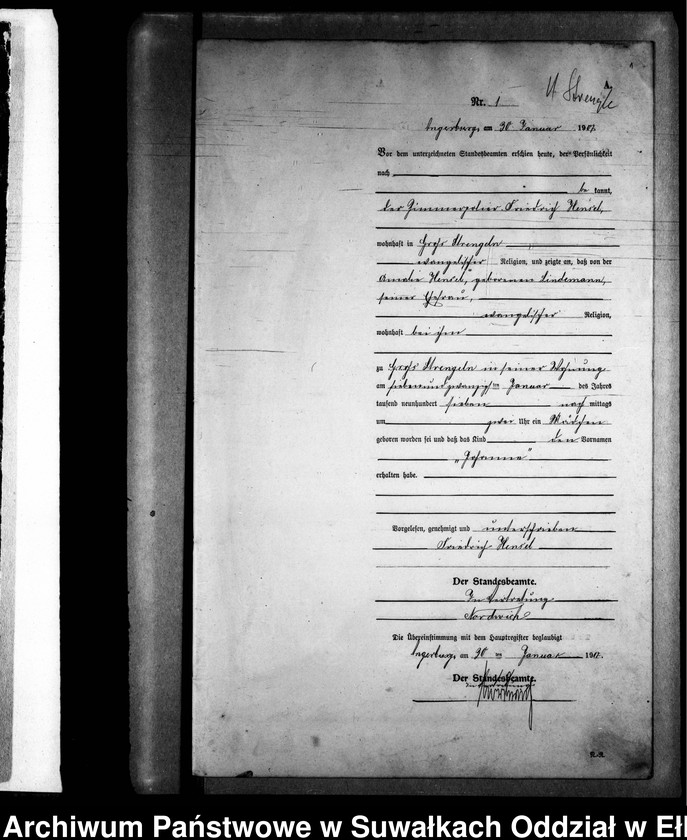 A.
Nr. 1
Angerburg, am 30 Januar 1907.
Vor dem unterzeichneten Standesbeamten erschien heute, der Persönlichkeit
nach
be kannt,
der Zimmerpolier Friedrich Hensel,
wohnhaft in Groß Strengeln
evangelischer Religion, und zeigte an, daß von der
Amalie Hensel, geborenen Lindemann,
seiner Ehefrau,
evangelischer Religion,
wohnhaft bei ihm
zu Groß Strengeln in seiner Wohnung
am siebenundzwanzigsten Januar des Jahres
tausend neunhundert sieben nach mittags
um zwei Uhr ein Mädchen
geboren worden sei und daß das Kind den Vornamen
„Johanna"
erhalten habe.
Vorgelesen, genehmigt und unterschrieben
Friedrich Hensel
Der Standesbeamte.
In Vertretung
Die Übereinstimmung mit dem Hauptregister beglaubigt
Angerburg, am 30 ten Januar 1907.
Der Standesbeamte.
Archiwum Państwowe w Suwałkach Oddział w Eł